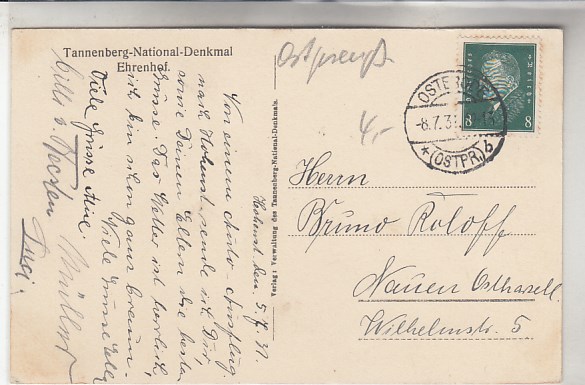 Tannenberg-National-Denkmal
Ehrenhof.
Ostpreuß
4,-
OSTERODE
-8.7.31
*(OSTPR.) b
8 8
Verlag: Verwaltung des Tannenberg-National-Denkmals.
Hohenst. den 5.7.31.
Von einem Auto-Ausflug
nach Hohenst. sende ich Dir,
sowie Deinen Eltern die besten
Grüsse. Das Wetter ist herrlich,
ich bin schon ganz braun.
Viele Grüsse
Viele Grüsse Eure
Luci.
Herrn
Bruno Roloff
Nauen Osthavell.
Wilhelmstr. 5